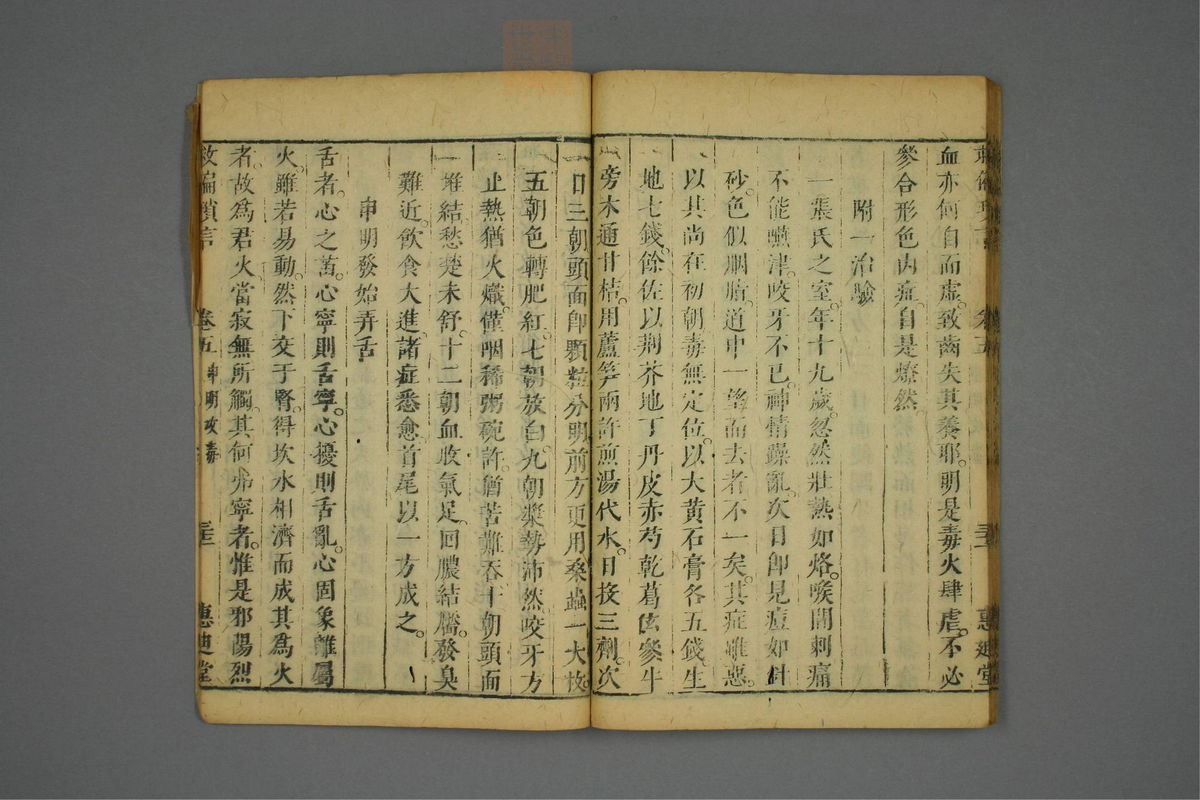 血亦何自而虛。致齒失其養耶。明是毒火肆虐。不必
參合形色內症。自是燎然。
附一治驗
一張氏之室。年十九歲。忽然壯熱如烙。喉間刺痛
不能嚥津。咬牙不已。神情躁亂。次日即見痘如針
砂。色似胭脂。道中一望而去者不一矣。其症雖惡。
以其尚在初朝毒無定位。以大黃石膏各五錢生
地七錢。餘佐以荆芥地丁丹皮赤芍乾葛玄參牛
旁木通甘桔。用蘆笋兩許煎湯代水。日按三劑。次
日三朝頭面即顆粒分明前方更用桑蟲一大枚。
五朝色轉肥紅。七朝放白。九朝漿勢沛然。咬牙方
止熱猶火熾。僅咽稀粥碗許。猶苦難吞十朝頭面
堆結愁楚未舒。十二朝血收氣足。回膿結靨。發臭
難近。飲食大進。諸症悉愈。首尾以一方成之。
申明發始弄舌
舌者。心之苗。心寧則舌寧。心擾則舌亂。心固象離屬
火。雖若易動。然下交于腎。得坎水相濟而成其爲火
者。故爲君火。當寂無所觸。其何弗寧者。惟是邪陽烈
救偏瑣言 卷五 申明咬毒 三三 惠迪堂